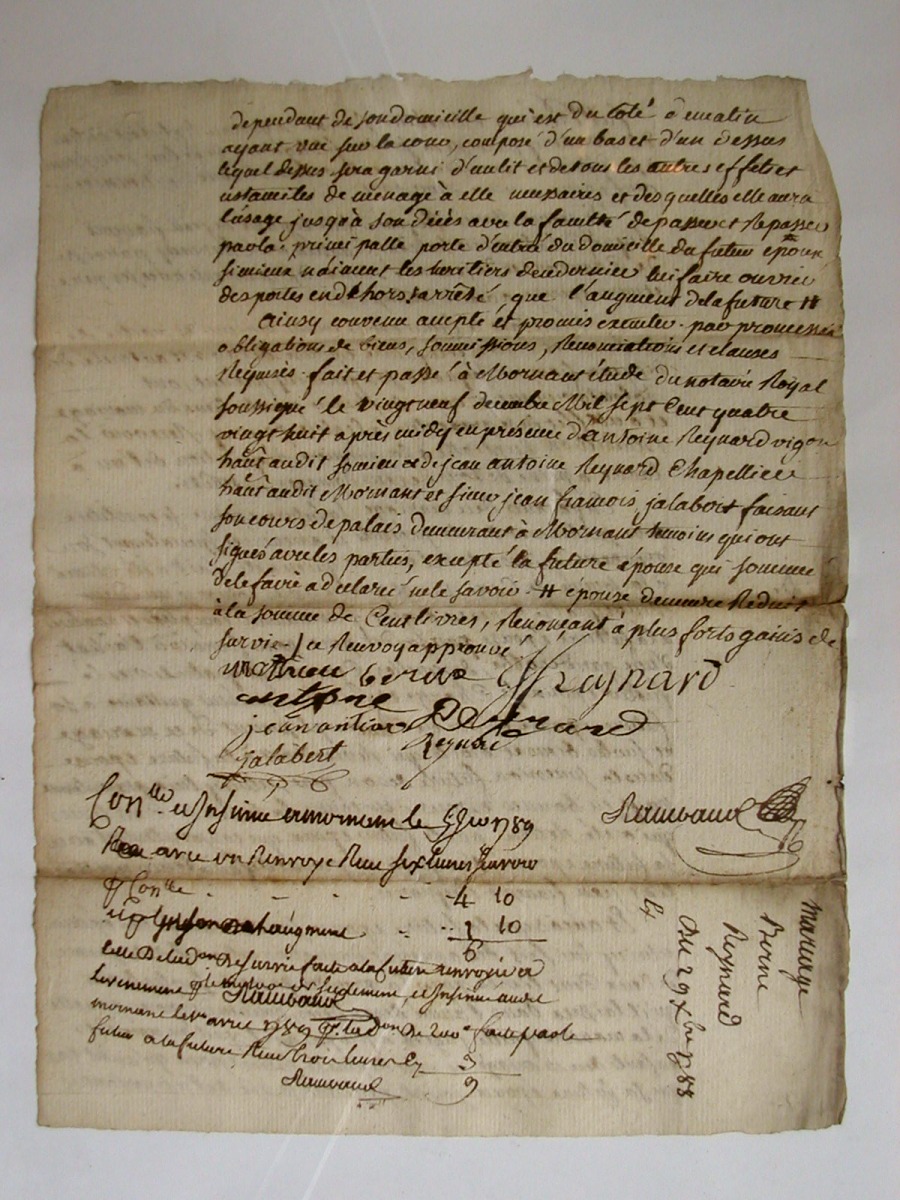 dependant de son domicille qui est du coté de matin
ayant vüe sur la cour, composé d'un bas et d'un dessus
lequel dessus sera garni d'un lit et de tous les autres effets et
ustanciles de menage à elle necessaires et desquelles elle aura
l'usage jusqu'à son décès avec la faculté de passer et repasser
par la principalle porte d'entrée du domicille du futur époux
si mieux n'aiment les heritiers de ce dernier lui faire ouvrir
des portes en dehors, arrêté que l'augment de la future #
Ainsy convenu accepté et promis executer par promesses
obligations de biens, soumissions, renonciations et clauses
requises fait et passé à Mornant étude du notaire Royal
soussigné le vingt neuf decembre Mil sept cent quatre
vingt huit après midy en présence d'antoine Reynard vigon
hãnt audit lieu et de jean antoine Reynard Chapellier
hãnt audit Mornant et sieur jean francois jalabert faisant
son cours de palais demeurant à Mornant temoins qui ont
signés avec les parties, excepté la future épouse qui sommée
de le faire a declaré ne le savoir. # épouse demeure reduit
à la somme de Cent livres, Renonçant à plus forts gains de
survie. / ce Renvoy approuvé
mathieu berne Reynard
antoine Reynard
jean antoine Reynard
jalabert
Raimbaud
Con.lle et Insinué a mornant le 1789
avec un Renvoye Recu six livres
p. Con.lle 4 10
l'augment 1 10
6
de survie faite a la future
Raimbaud
mornant le avril 1789 faite par le
futur a la future Recu trois livres 3
9
Raimbaud
mariage
Berne
Reynard
Du 29 xbre 1788